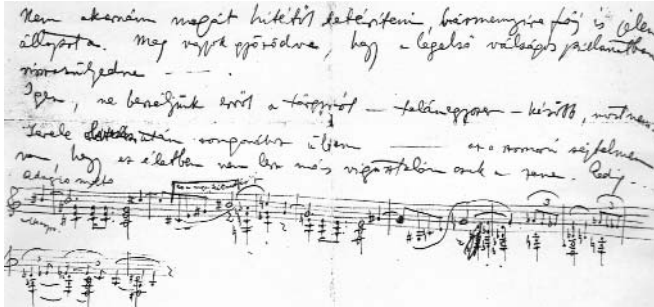 Nem akarnám magát hitétől eltéríteni, bármennyire fáj is jelen
állapota. Meg vagyok győződve, hogy a legelső válságos pillanatban
visszasülyedne — — .
Igen, ne beszéljünk erről a tárgyról – talán egyszer – később, most nem.
Levele után zongorához ültem —— az a szomorú sejtelmem
van, hogy az életben nem lesz más vigasztalóm csak a zene. Pedig –
Adagio molto
3 3 3